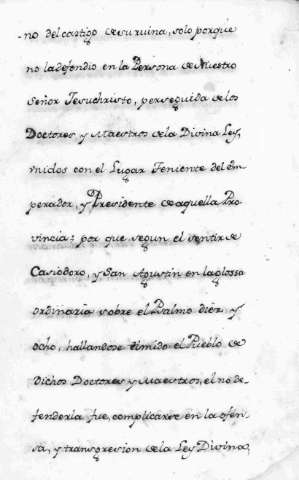 -no del castigo de su ruina, solo porque
no la defendio en la Persona de Nuestro
Señor Jesuchristo, perseguida de los
Doctores y Maestros de la Divina Ley,
vnidos con el Lugar Teniente del Em-
perador, y Presidente de aquella Pro
vincia; por que segun el sentir de
Casiodoro, y San Agustin en la glossa
ordinaria sobre el Psalmo diez y
ocho, hallandose timido el Pueblo de
dichos Doctores y Maestros, el no de-
fenderla fue, complicarse en la ofen
sa, y transgresion de la Ley Divina,